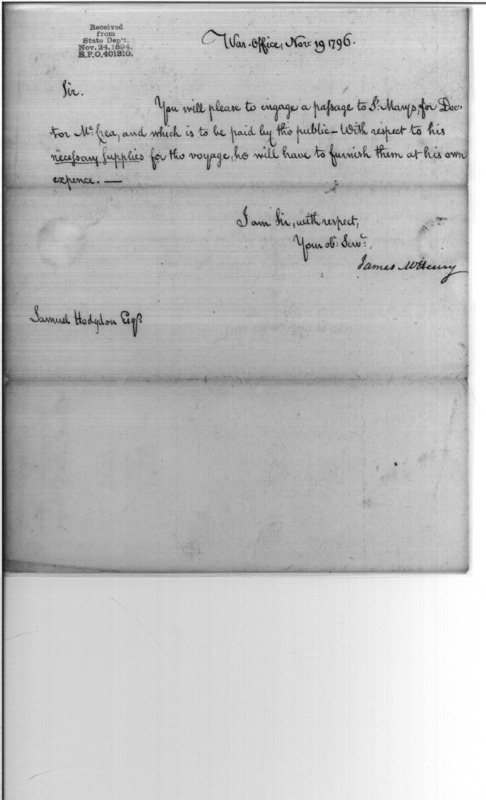 Received
from
State Dep't.
Nov. 24, 1894.
R.P.O. 401310.
War-Office, Nov: 19 1796.
Sir.
You will please to engage a passage to St. Marys, for Doc-
tor McCrea, and which is to be paid by the public – With respect to his
necessary supplies for the voyage, he will have to furnish them at his own
expence. —
I am Sir, with respect,
Your ob: Serv:
James McHenry
Samuel Hodgdon Esqr